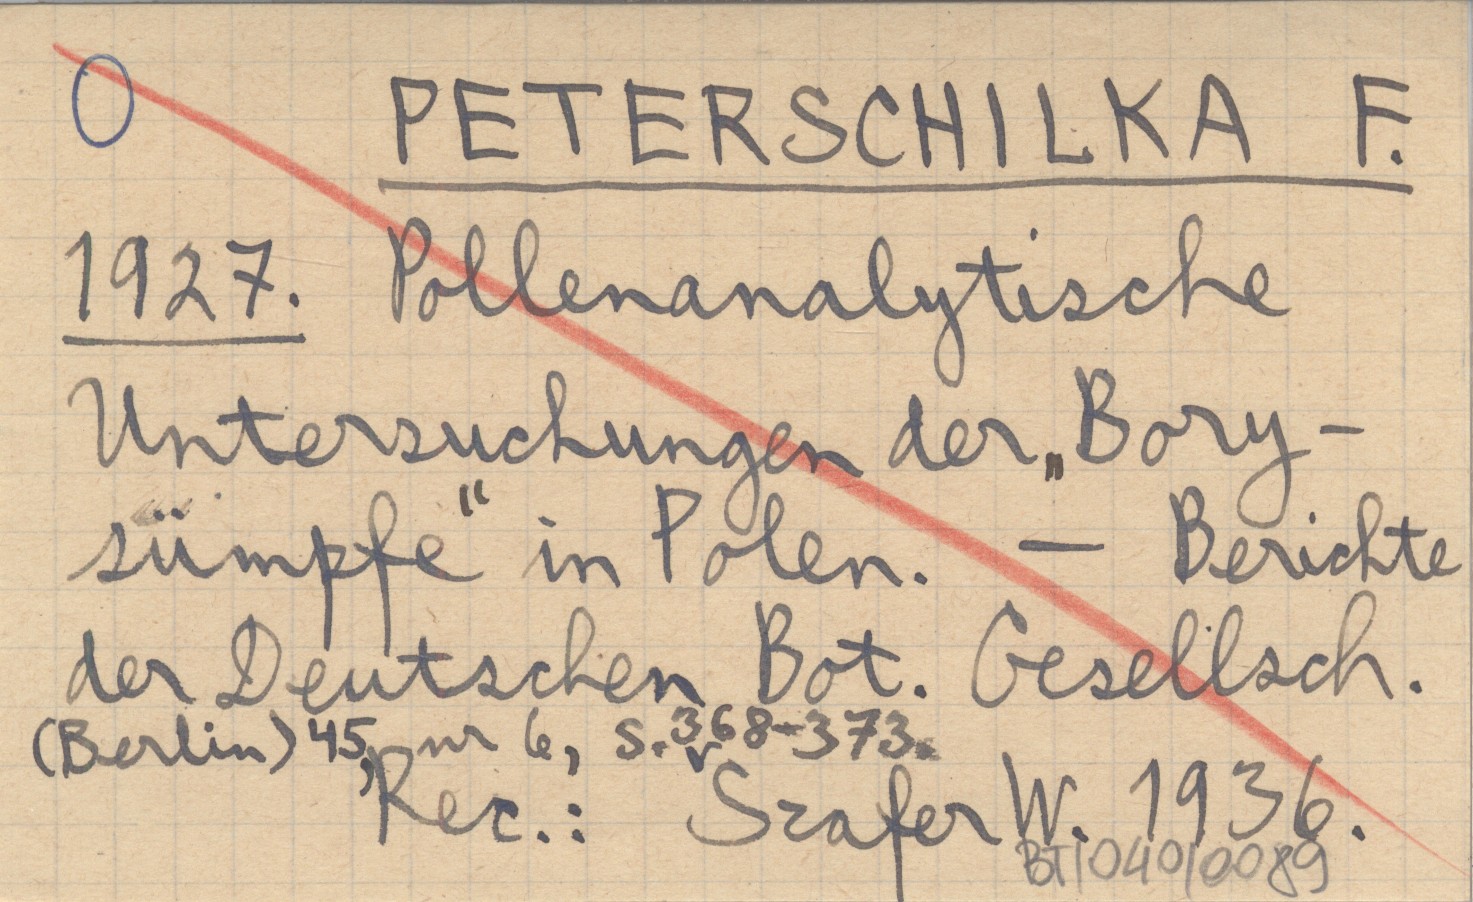 O PETERSCHILKA F.
1927. Pollenanalytische
Untersuchungen der „Bory-
sümpfe“ in Polen. — Berichte
der Deutschen Bot. Gesellsch.
(Berlin) 45, nr 6, s. 368-373.
Rec.: Szafer W. 1936.
BT/040/0089